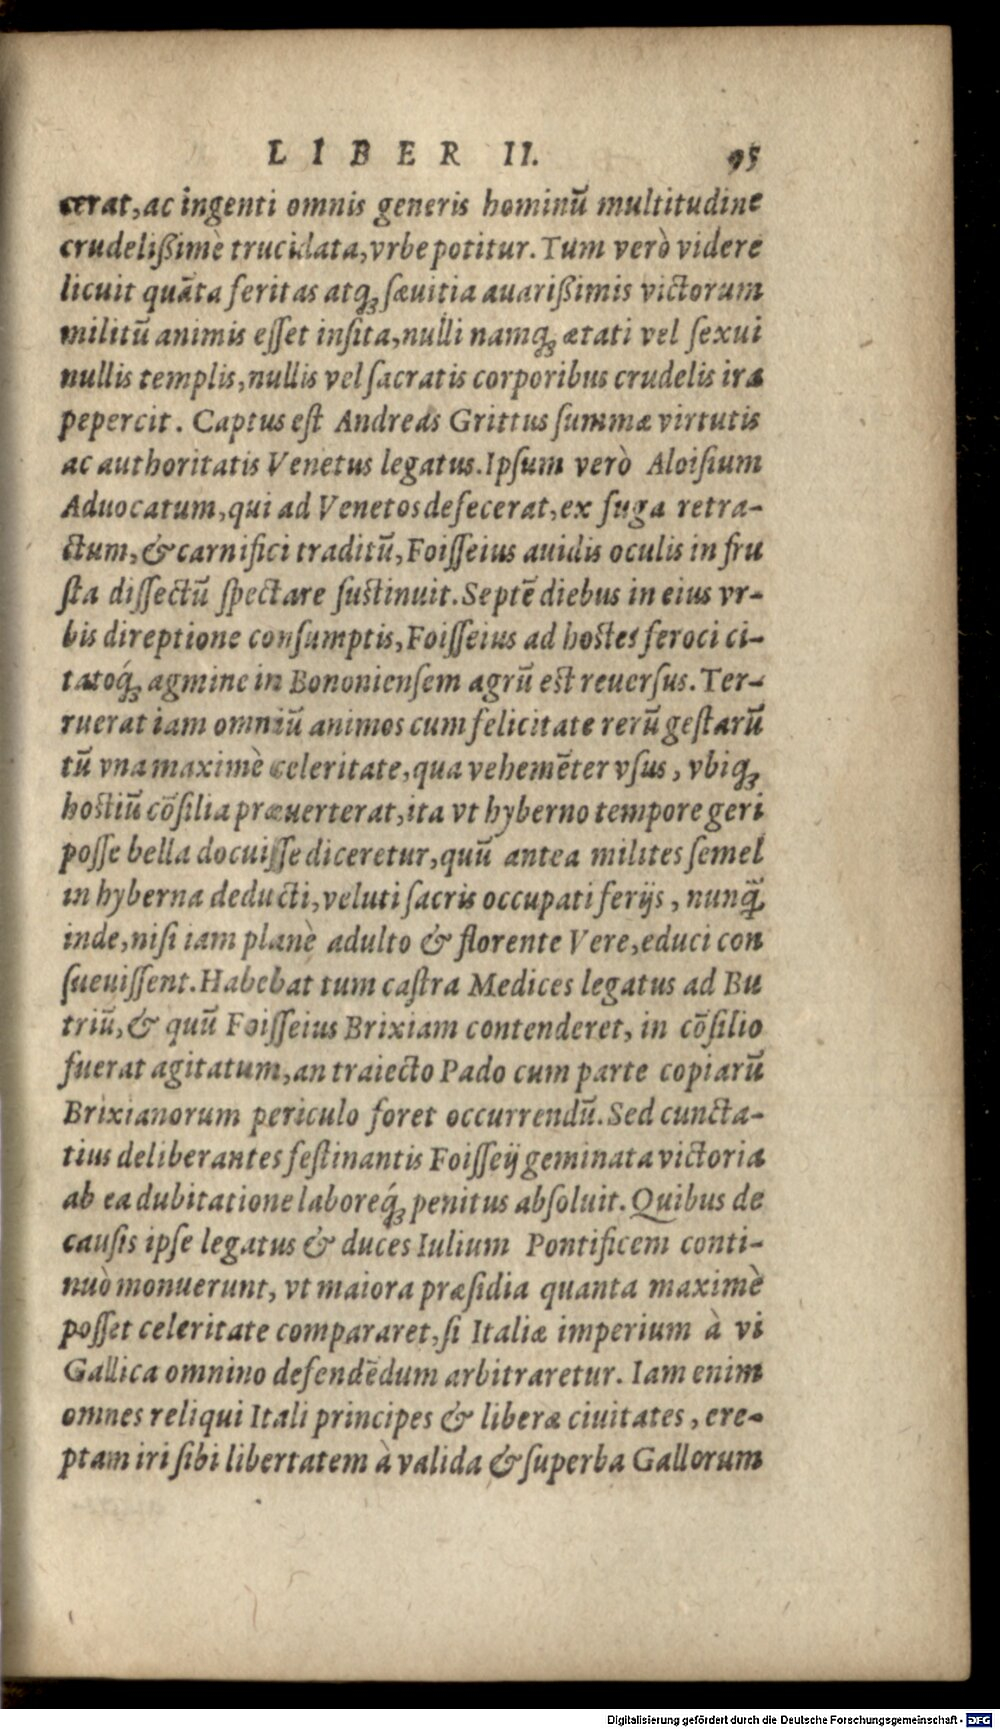 LIBER II. 95
cerat, ac ingenti omnis generis hominū multitudine
crudelißimè trucidata, vrbe potitur. Tum verò videre
licuit quāta feritas atq́; sæuitia auarißimis victorum
militū animis esset insita, nulli namq́; ætati vel sexui
nullis templis, nullis vel sacratis corporibus crudelis ira
pepercit. Captus est Andreas Grittus summæ virtutis
ac authoritatis Venetus legatus. Ipsum verò Aloisium
Aduocatum, qui ad Venetos defecerat, ex fuga retra-
ctum, & carnifici traditū, Foisseius auidis oculis in fru
sta dissectū spectare sustinuit. Septē diebus in eius vr-
bis direptione consumptis, Foisseius ad hostes feroci ci-
tatoq́; agmine in Bononiensem agrū est reuersus. Ter-
ruerat iam omniū animos cum felicitate rerū gestarū
tū vna maximè celeritate, qua vehemēter vsus, vbiq;
hostiū cōsilia præuerterat, ita vt hyberno tempore geri
posse bella docuisse diceretur, quū antea milites semel
in hyberna deducti, veluti sacris occupati ferijs, nunq̄;
inde, nisi iam planè adulto & florente Vere, educi con
sueuissent. Habebat tum castra Medices legatus ad Bu
triū, & quū Foisseius Brixiam contenderet, in cōsilio
fuerat agitatum, an traiecto Pado cum parte copiarū
Brixianorum periculo foret occurrendū. Sed cuncta-
tius deliberantes festinantis Foisseij geminata victoria
ab ea dubitatione laboreq́; penitus absoluit. Quibus de
causis ipse legatus & duces Iulium Pontificem conti-
nuò monuerunt, vt maiora præsidia quanta maximè
posset celeritate compararet, si Italiæ imperium à vi
Gallica omnino defendēdum arbitraretur. Iam enim
omnes reliqui Itali principes & liberæ ciuitates, ere-
ptam iri sibi libertatem à valida & superba Gallorum
Digitalisierung gefördert durch die Deutsche Forschungsgemeinschaft - DFG